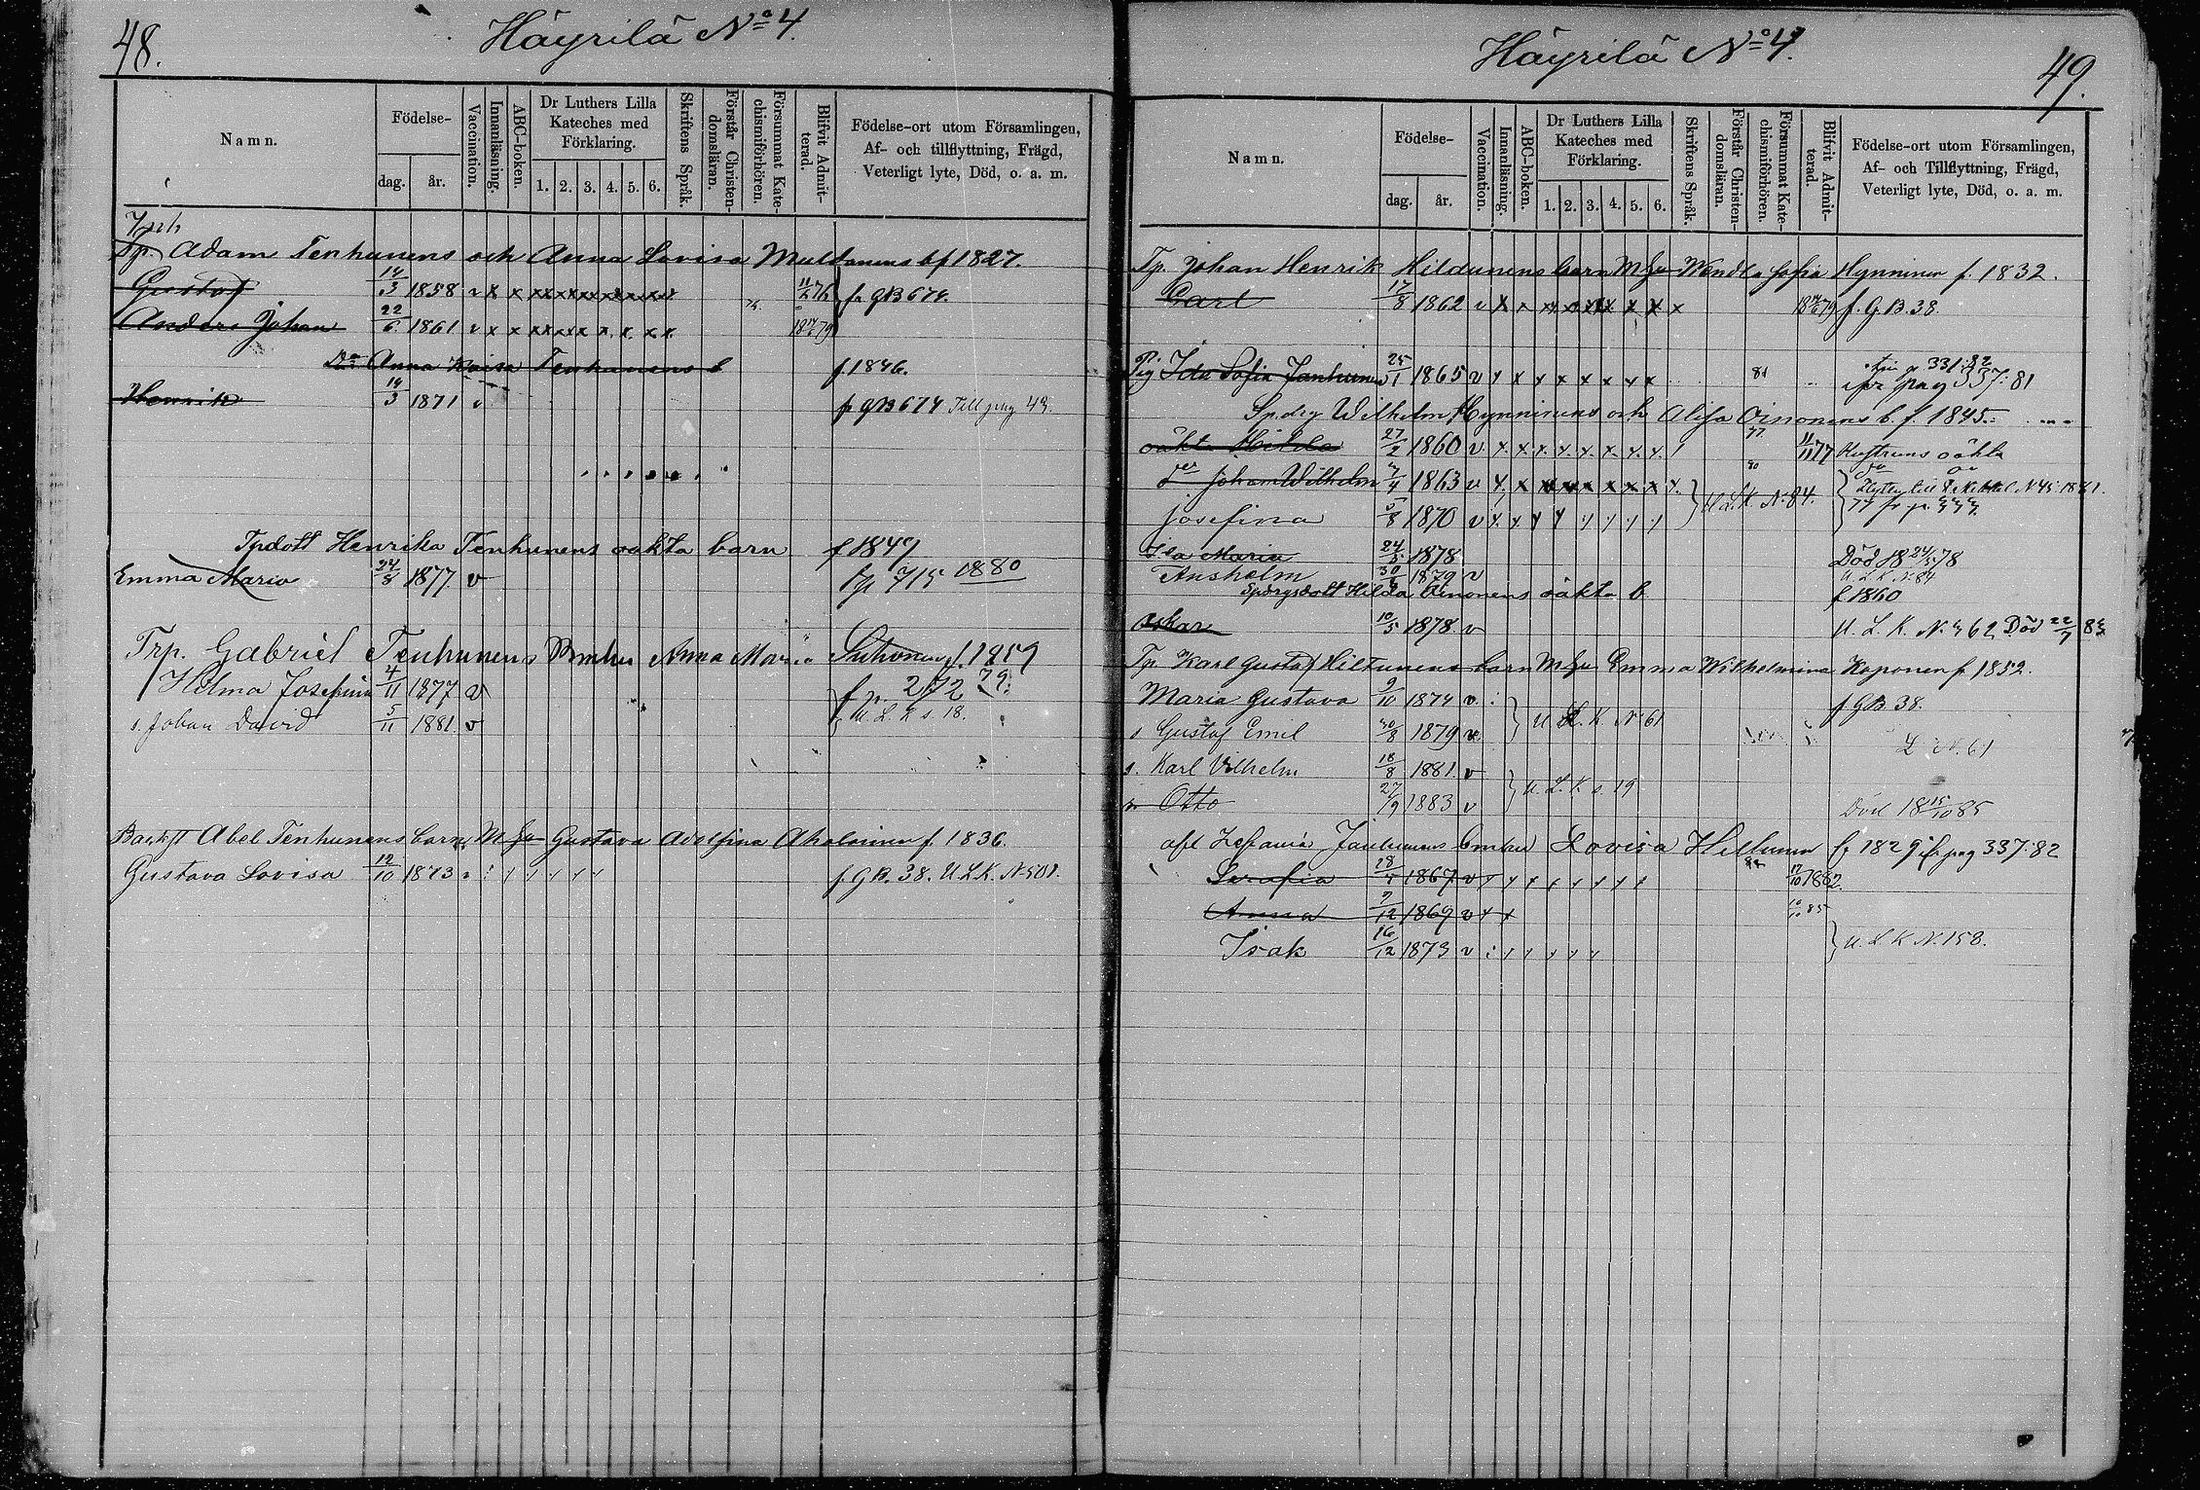 48.
Häyrilä No 4.
Namn.
Födelse-
dag.
år.
Vaccination.
Innanläsning.
ABC-boken.
Dr Luthers Lilla
Kateches med
Förklaring.
1. 2. 3. 4. 5. 6.
Skriftens Språk.
Förstår Christen-
domsläran.
Försummat Kate-
chismiförhören.
Blifvit Admit-
terad.
Födelse-ort utom Församlingen,
Af- och tillflyttning, Frägd,
Veterligt lyte, Död, o. a. m.
Tp. Adam Tenhunens och Anna Lovisa b f 1827.
Gustaf 14/3 1858 v x x x x x x x x 76 f. GB 674.
Anders Johan 22/6 1861 v x x x x x x x x 79
Anna Kaisa Tenhunens b f 1846.
Henrik 14/3 1871 v fr GB 674 Till pag 43.
Tpdott Henrika Tenhunens oäkta barn f 1847
Emma Maria 24/8 1877 v 715 1880
Trp. Gabriel Tenhunens Anna Maria
Helma Josefina 4/11 1877 v f p. 272 79.
s. Johan David 5/11 1881. v U. L. K s 18.
Abel Tenhunens barn, M Hu Gustava Adolfina f. 1836.
Gustava Lovisa 12/10 1873 v f GB. 38. U.L.K. N 501.
Häyrilä No 4.
49.
Namn.
Födelse-
dag.
år.
Vaccination.
Innanläsning.
ABC-boken.
Dr Luthers Lilla
Kateches med
Förklaring.
1. 2. 3. 4. 5. 6.
Skriftens Språk.
Förstår Christen-
domsläran.
Försummat Kate-
chismiförhören.
Blifvit Admit-
terad.
Födelse-ort utom Församlingen,
Af- och Tillflyttning, Frägd,
Veterligt lyte, Död, o. a. m.
Tp. Johan Henrik Hildunens barn M Hu Wendla Sofia Hynninen f. 1832.
Carl 17/8 1862 v x x x x x x x x x f. G.B. 38.
Pig Ida Sofia Janhunen 25/1 1865 v x x x x x x x x 81 331:82
pag 337:81
Wilhelm Hynninens och Alisa Oinonens b. f. 1845.
oäkta Hilda 27/2 1860 v x x x x x x x x 77 11/11 77 Hustruns oäkta
Johan Wilhelm 1863 v x x x x x x x x x. 80 N 45: 1881.
Josefina 1870 v U. L. K. N. 84.
Ida Maria 24/5 1878 Död 18 24/5 78
Ansholm 30/8 1879 v U. L. K. N. 84
Hilda Oinonens oäkta b f 1860
Oskar 10/5 1878 v U. L. K. N. 362 Död 22/7 83
Tp. Karl Gustaf Hiltunens barn M Hu Emma Wilhelmina Koponen f. 1852.
Maria Gustava 9/10 1874 v f GB 38.
s Gustaf Emil 30/8 1879 v U L. K N. 61
L N. 61
s. Karl Vilhelm 18/8 1881. v
Otto 27/9 1883 v U. L. K. s. 19 Död 18 15/10 85
Lovisa Hiltunen f. 1829 fr pag 337:82
Serafia 1867 v x x x x x x x x 1882.
Anna 7/12 1869 v x x 85
Isak 16/12 1873 v U. L K N. 158.